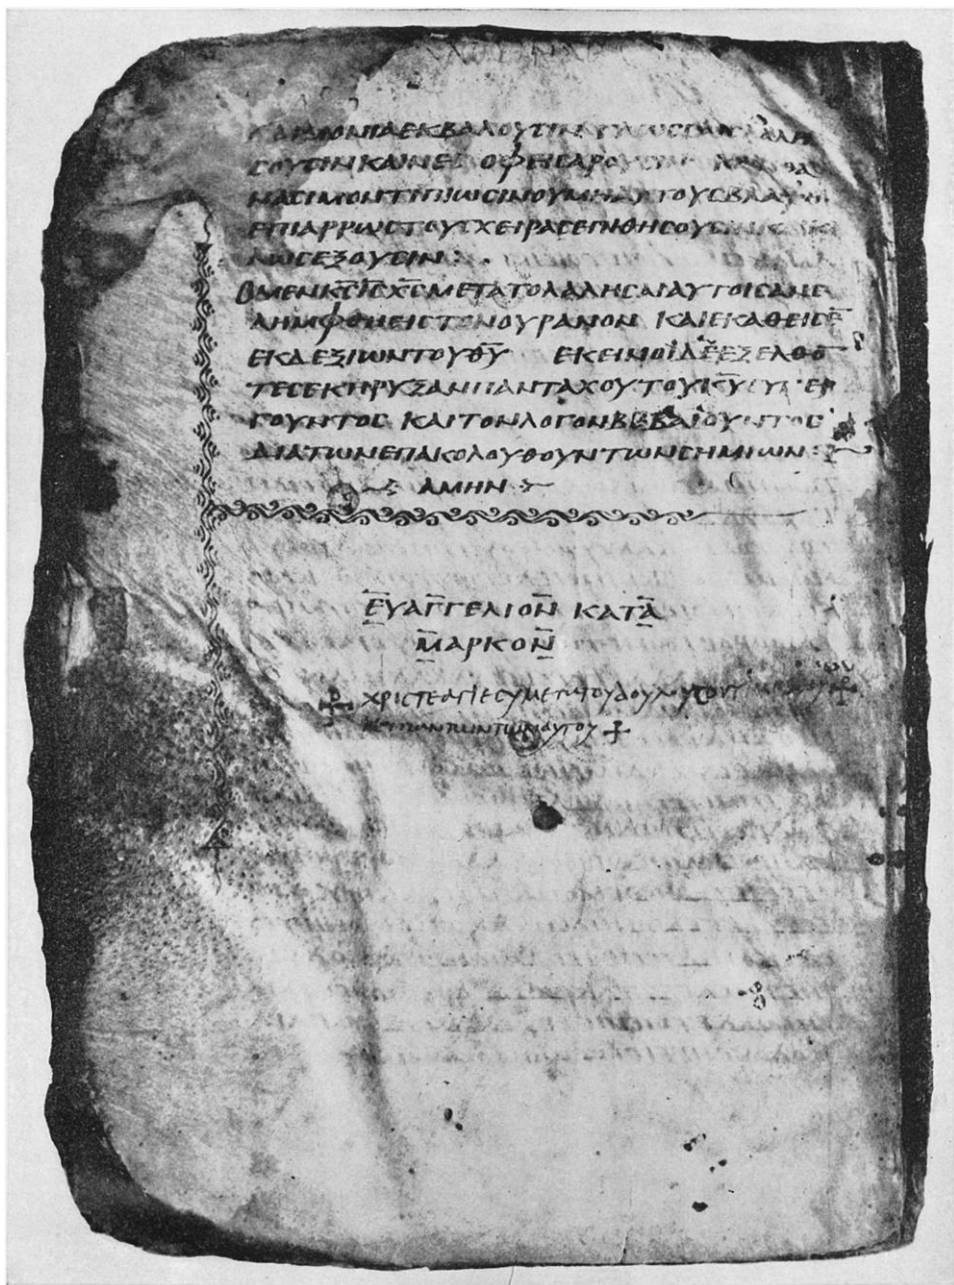 ΔΑΙΜΟΝΙΑ ΕΚΒΑΛΟΥΣΙΝ ΓΛΩΣΣΑΙΣ ΛΑΛΗ
ΣΟΥΣΙΝ ΚΑΙΝΕΣ ΟΦΕΙΣ ΑΡΟΥΣΙΝ ΚΑΝ ΘΑ
ΝΑΣΙΜΟΝ ΤΙ ΠΙΩΣΙΝ ΟΥ ΜΗ ΑΥΤΟΥΣ ΒΛΑΨΗ
ΕΠΙ ΑΡΡΩΣΤΟΥΣ ΧΕΙΡΑΣ ΕΠΙΘΗΣΟΥΣΙΝ ΚΑΙ ΚΑ
ΛΩΣ ΕΞΟΥΣΙΝ :
Ο ΜΕΝ Κ̅Σ̅ Ι̅Σ̅ Χ̅Σ̅ ΜΕΤΑ ΤΟ ΛΑΛΗΣΑΙ ΑΥΤΟΙΣ ΑΝΕ
ΛΗΜΦΘΗ ΕΙΣ ΤΟΝ ΟΥΡΑΝΟΝ ΚΑΙ ΕΚΑΘΕΙΣΕ̅
ΕΚ ΔΕΞΙΩΝ ΤΟΥ Θ̅Υ̅ ΕΚΕΙΝΟΙ ΔΕ ΕΞΕΛΘΟ̅
ΤΕΣ ΕΚΗΡΥΞΑΝ ΠΑΝΤΑΧΟΥ ΤΟΥ Κ̅Υ̅ ΣΥΝΕΡ
ΓΟΥΝΤΟΣ ΚΑΙ ΤΟΝ ΛΟΓΟΝ ΒΕΒΑΙΟΥΝΤΟΣ
ΔΙΑ ΤΩΝ ΕΠΑΚΟΛΟΥΘΟΥΝΤΩΝ ΣΗΜΙΩΝ :
ΑΜΗΝ
ΕΥΑΓΓΕΛΙΟΝ ΚΑΤΑ
ΜΑΡΚΟΝ
ΧΡΙΣΤΕ ΑΓΙΕ ΣΥ ΜΕΤΑ ΤΟΥ ΔΟΥΛΟΥ ΣΟΥ
ΚΑΙ ΠΑΝΤΩΝ ΤΩΝ ΑΥΤΟΥ